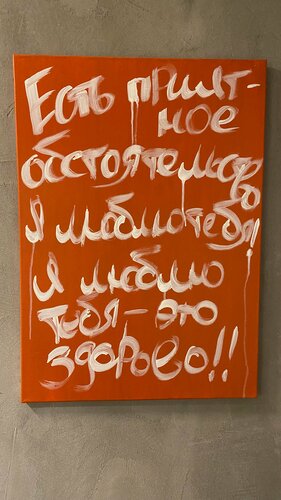 Есть прият-
ное
обстоятельство
Я люблю тебя!
Я люблю
тебя - это
здорово!!